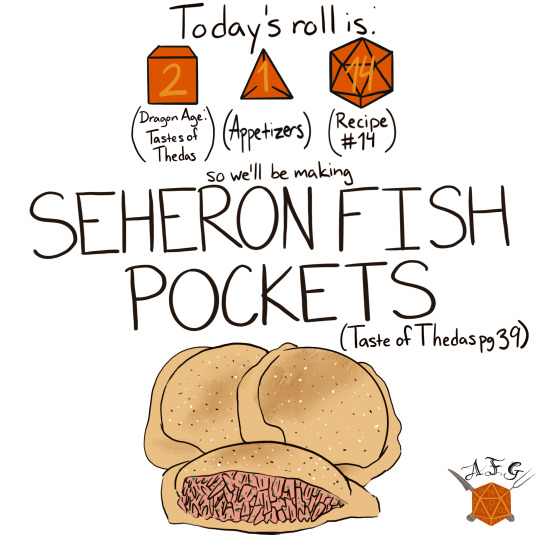 Today's roll is:
2 1 14
(Dragon Age: Tastes of Thedas) (Appetizers) (Recipe #14)
so we'll be making
SEHERON FISH
POCKETS
(Taste of Thedas pg 39)
A.F.G